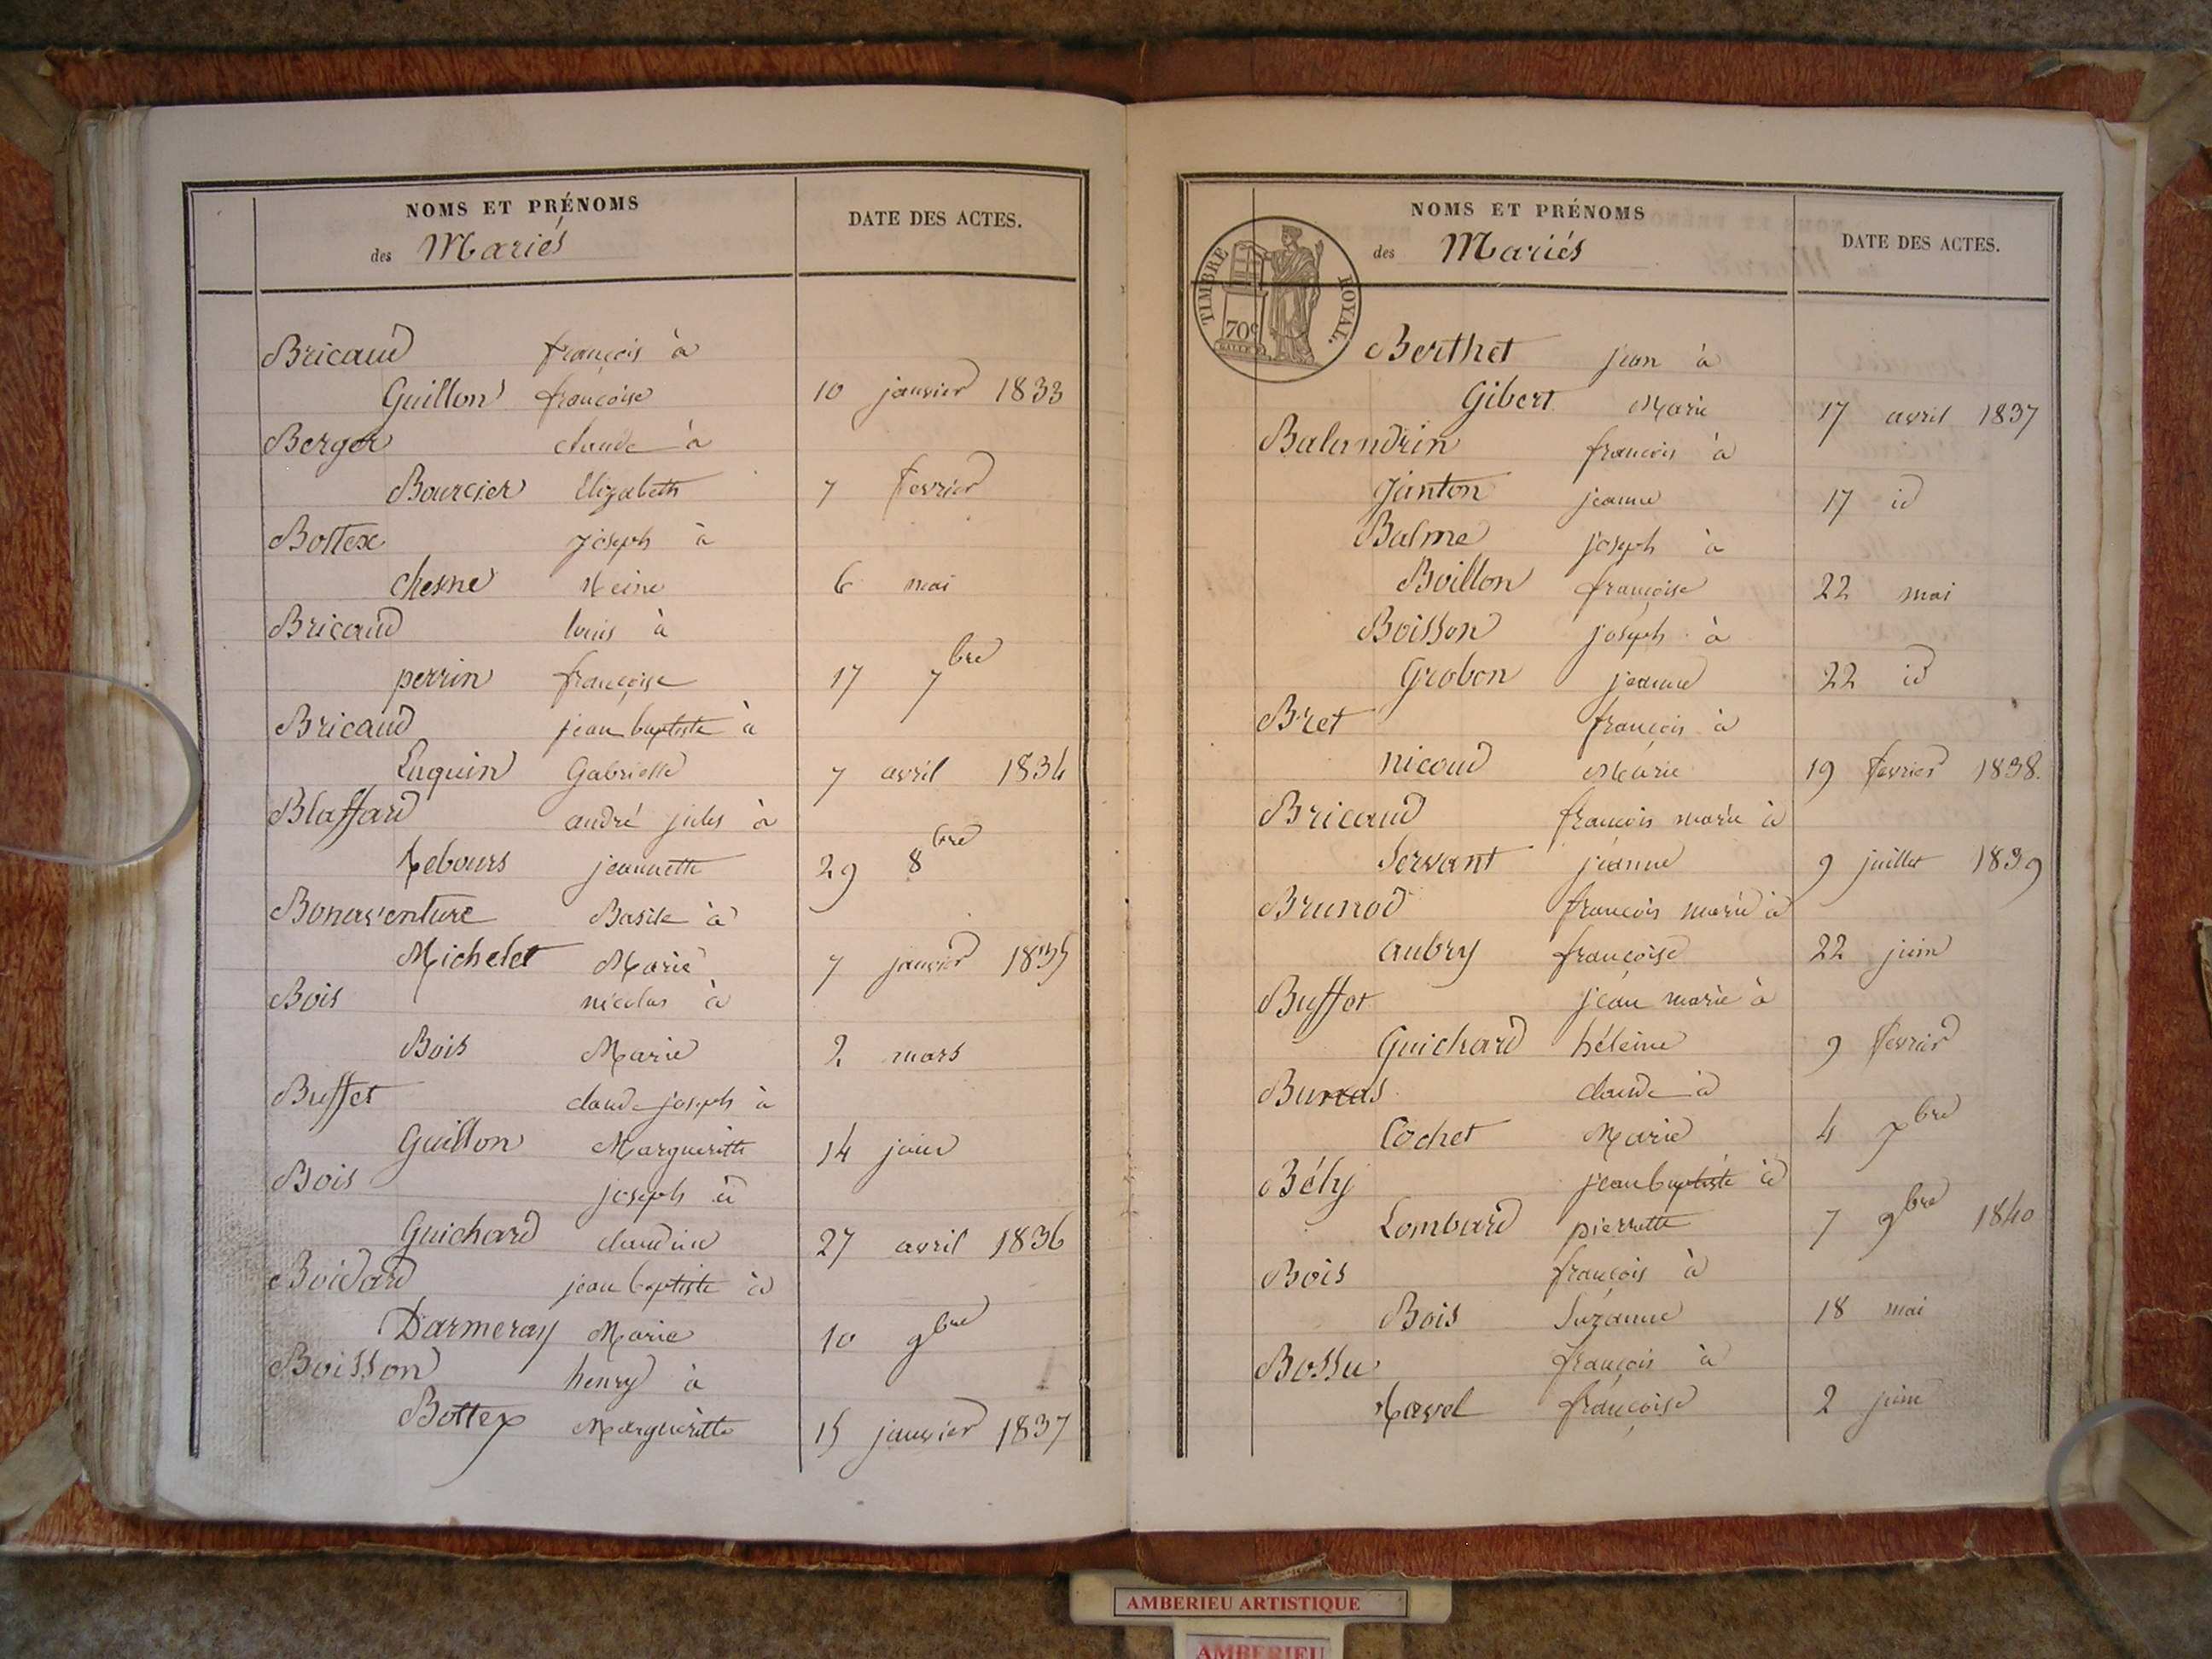 NOMS ET PRÉNOMS
des Mariés
DATE DES ACTES.
Bricaud françois à
Guillon françoise 10 janvier 1833
Berger claude à
Bourcier Elizabeth 7 fevrier
Bottex joseph à
Chesne Reine 6 mai
Bricaud louis à
perrin françoise 17 7bre
Bricaud jean baptiste à
Luquin Gabrielle 7 avril 1834
Blaffard andré jules à
Rebours jeannette 29 8bre
Bonaventure Basile à
Michelet Marie 7 janvier 1835
Bois nicolas à
Bois Marie 2 mars
Buffet claude joseph à
Guillon Margueritte 14 juin
Bois joseph à
Guichard claudine 27 avril 1836
Boidard jean baptiste à
Darmeray Marie 10 9bre
Boisson henry à
Bottex Margueritte 15 janvier 1837
NOMS ET PRÉNOMS
des Mariés
DATE DES ACTES.
TIMBRE ROYAL.
70c
Berthet jean à
Gibert Marie 17 avril 1837
Balandrin francois à
Janton jeanne 17 id
Balme joseph à
Boillon françoise 22 mai
Boisson joseph à
Grobon jeanne 22 id
Bret françois à
nicoud Marie 19 fevrier 1838.
Bricaud francois marie à
Servant jeanne 9 juillet 1839
Brunod francois marie à
aubry françoise 22 juin
Buffet jean marie à
Guichard héleine 9 fevrier
claude à
Cochet Marie 4 7bre
Bély jean baptiste à
Lombard pierrette 7 9bre 1840
Bois françois à
Bois Suzanne 18 mai
Bossu françois à
Ravel françoise 2 juin
AMBERIEU ARTISTIQUE
AMBERIEU